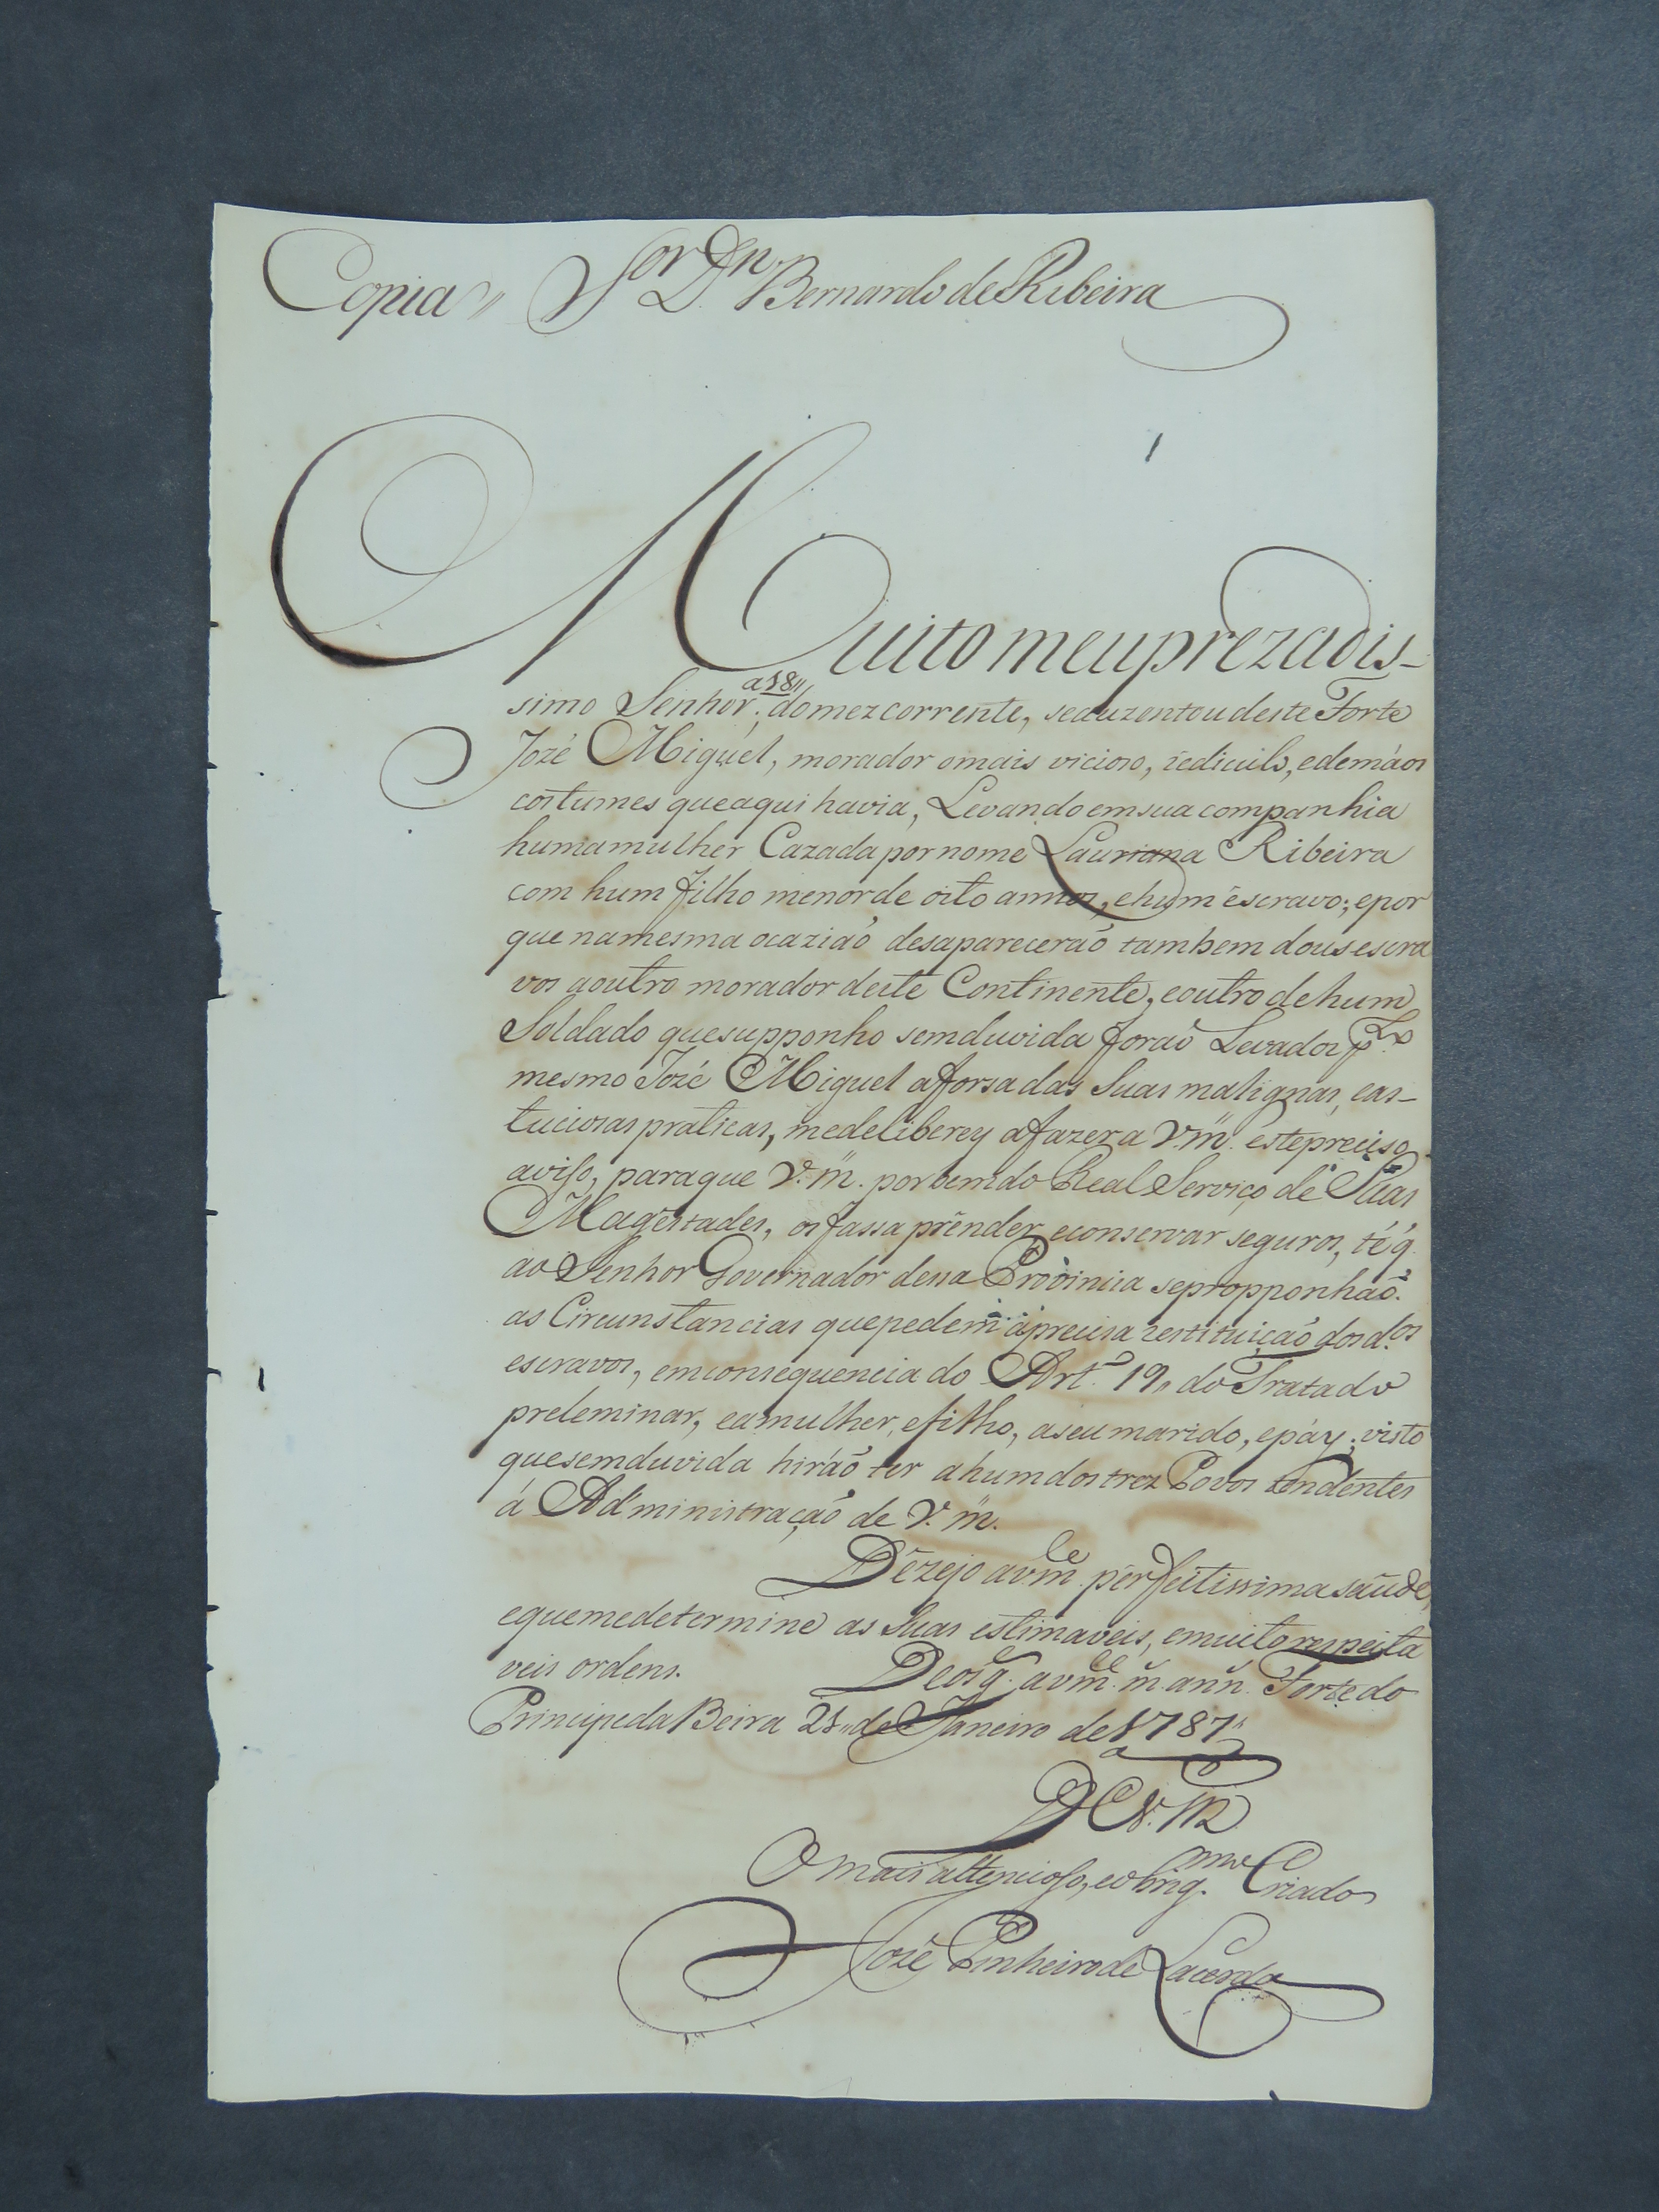 Copia,, S.or D.n Bernardo de Ribeira
Muito meu prezadis-
simo Senhor: a 18,, do mez corrente, se auzentou deste Forte
Jozé Miguel, morador o mais vicioso, rediculo, e de máos
costumes que aqui havia, Levando em sua companhia
huma mulher Cazada por nome Lauriana Ribeira
com hum filho menor de oito annos, e hum escravo; e por
que na mesma ocazião desaparecerão tambem dous escra
vos a outro morador deste Continente, e outro de hum
Soldado que supponho sem duvida forão Levados p.lo
mesmo Jozé Miguel a forsa das Suas malignas, e as-
tuciosas praticas, me deliberey a fazer a V. m. este preciso
aviso, para que V. m. por bem do Real Serviço de Suas
Magestades, os fassa prender, e conservar seguros, té q.
ao Senhor Governador dessa Provincia se propponhão
as Circunstancias que pedem a precisa restituição dos d.os
escravos, em consequencia do Art.o 19,, do Tratado
preleminar, e a mulher, e filho, a seu marido, e páy; visto
que sem duvida hirão ter a hum dos trez Povos tendentes
á Administração de V. m.
Dezejo a vm.ce perfeitissima saude,
e que me determine as Suas estimaveis, e muito respeita
veis ordens. Deos g.e a vm.ce m. ann. Forte do
Principe da Beira 21,, de Janeiro de 1787,,
D V. M.
O mais attencioso, e obrig.mo Criado
Jozé Pinheiro de Lacerda